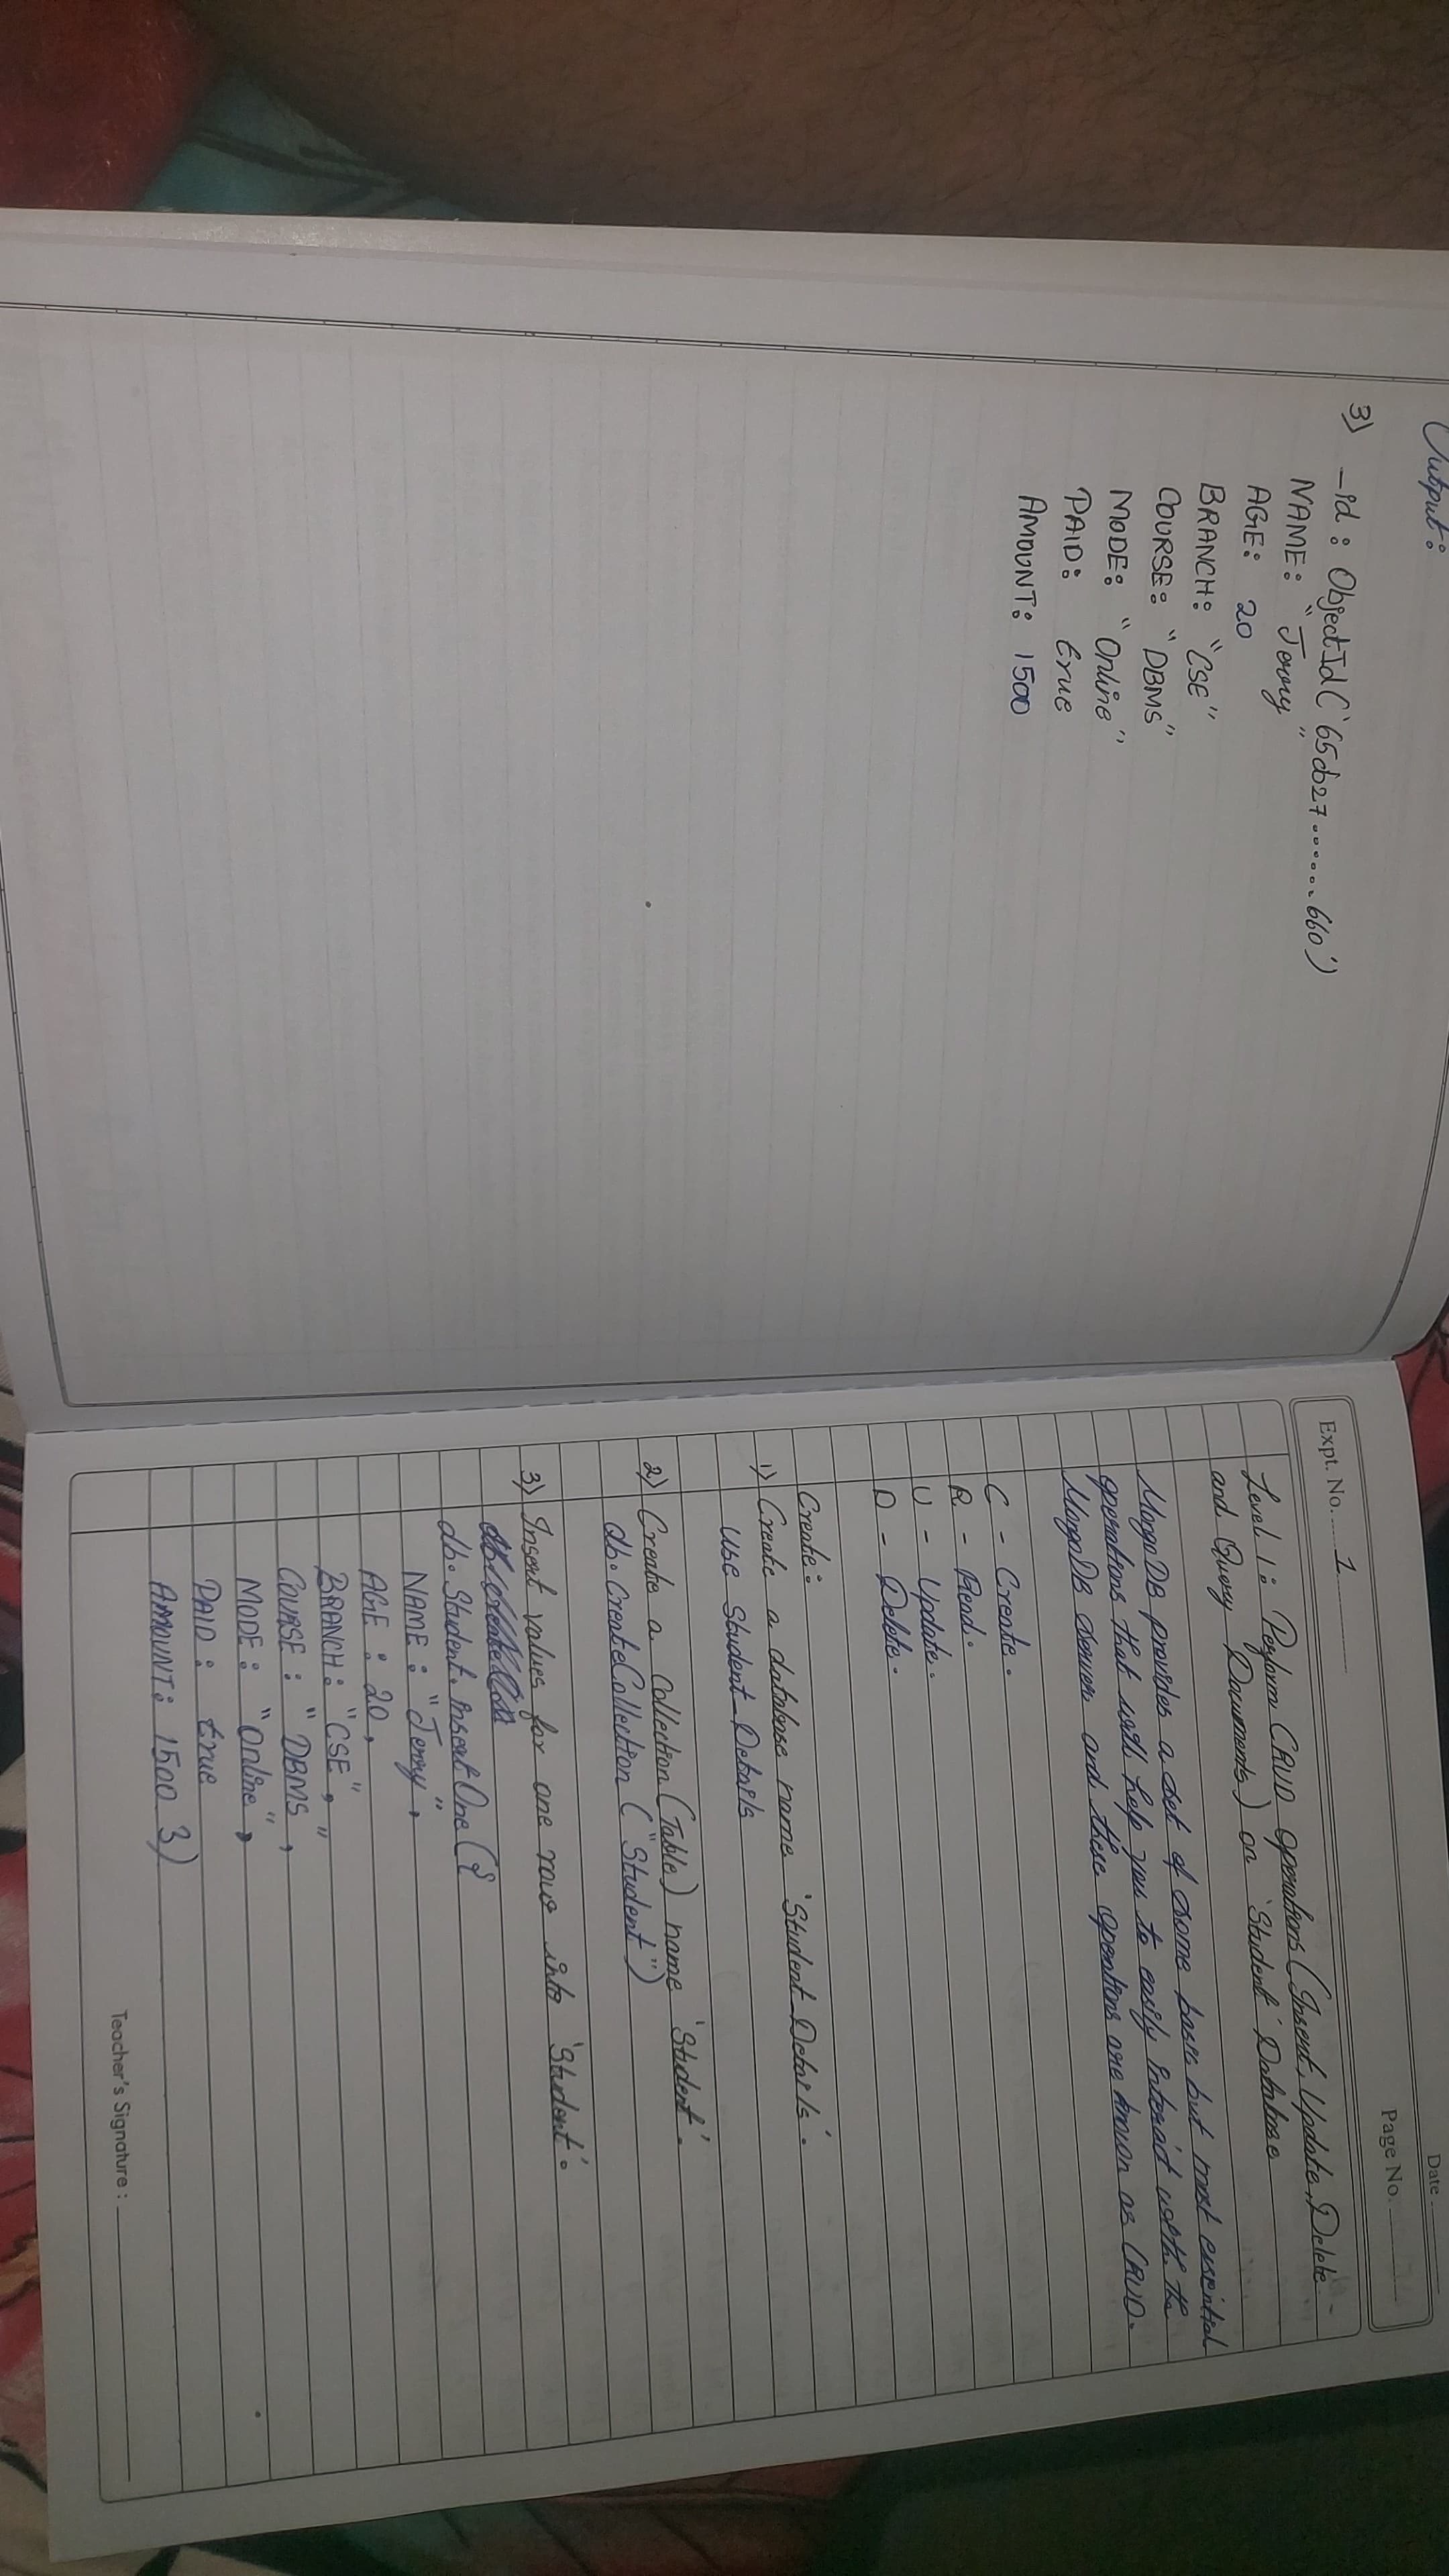 Output:
3) _id : ObjectId('65cb27.......660')
NAME: "Jerry"
AGE: 20
BRANCH: "CSE"
COURSE: "DBMS"
MODE: "Online"
PAID: true
AMOUNT: 1500
Date
Page No.
Expt. No. 1
Level 1: Perform CRUD operations (Insert, Update, Delete
and Query Documents) on 'Student' Database
MongoDB provides a set of some basic but most essential
operations that will help you to easily interact with the
MongoDB server and these operations are known as CRUD.
C - Create.
R - Read.
U - Update.
D - Delete.
Create:
1) Create a database name 'Student_Details'.
use Student_Details
2) Create a Collection (Table) name 'Student'.
db.createCollection ("Student")
3) Insert values for one row into 'Student'.
db.Student.insertOne ({
NAME : "Jerry",
AGE : 20,
BRANCH: "CSE",
COURSE : "DBMS",
MODE : "Online",
PAID : true
AMOUNT: 1500 })
Teacher's Signature :